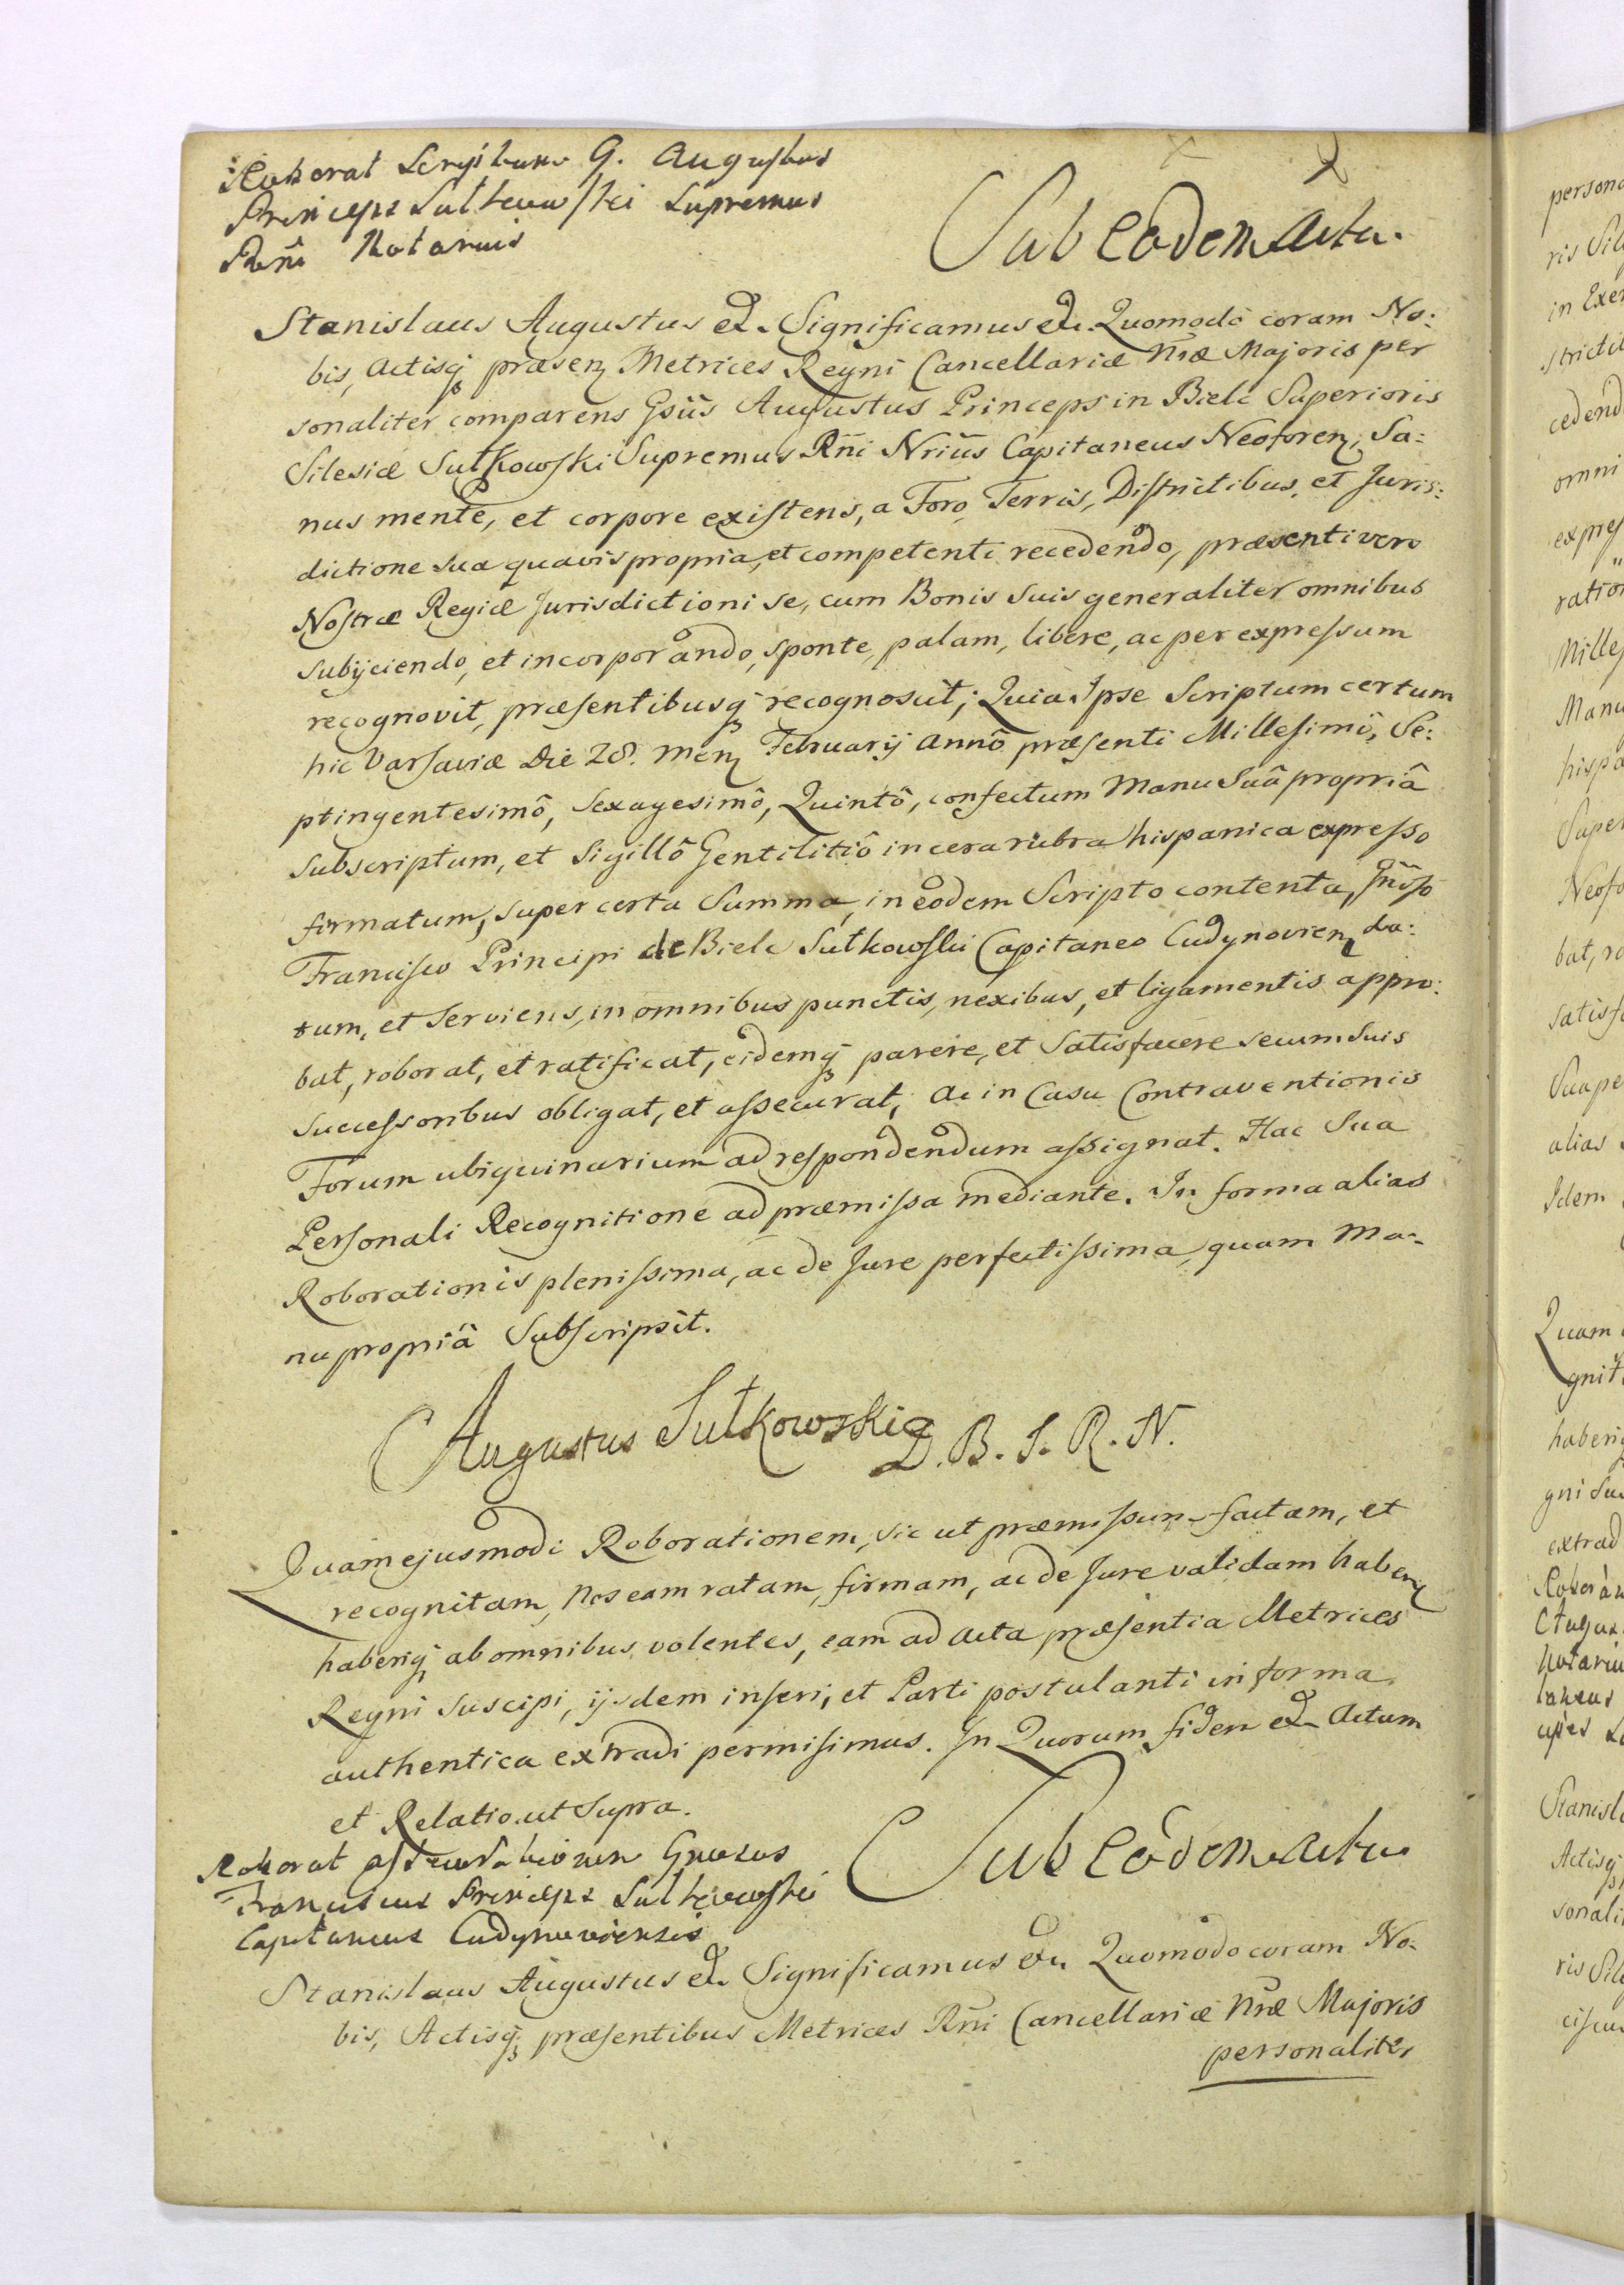 Roborat Scriptum G. Augustus
Princeps Sulkowski Supremus
Rñi Notarius
Sub eodem Actu.
Stanislaus Augustus etc. Significamus etc. Quomodo coram No:
bis, Actisq; præsen; Metrices Regni Cancellariæ Nræ Majoris per
sonaliter comparens Gsus Augustus Princeps in Biele Superioris
Silesiæ Sułkowski Supremus Rñi Nrius Capitaneus Neoforen; Sa:
nus mente, et corpore existens, a Foro, Terris, Districtibus, et Juris:
dictione sua quavis propria, et competenti recedendo, præsenti vero
Nostræ Regiæ Jurisdictioni se, cum Bonis suis generaliter omnibus
subijciendo, et incorporando, sponte, palam, libere, ac per expressum
recognovit, præsentibusq; recognoscit; Quia Ipse Scriptum certum
hic Varsaviæ Die 28. Men; Februarij Annô præsenti Millesimô, Se:
ptingentesimô, Sexagesimô, Quintô, confectum Manu Suâ propriâ
subscriptum, et Sigillô Gentilitiô in cera rubra hispanica expresso
firmatum, super certa Summa, in eodem Scripto contenta, Gnoso
Francisco Principi de Biele Sułkowski Capitaneo Cudynovien; da:
tum, et serviens, in omnibus punctis, nexibus, et ligamentis appro:
bat, roborat, et ratificat, eidemq; parere, et satisfacere secum suis
successoribus obligat, et assecurat; Ac in Casu Contraventionis
Forum ubiquinarium ad respondendum assignat. Hac Sua
Personali Recognitione ad præmissa mediante. In forma alias
Roborationis plenissima, ac de Jure perfectissima, quam Ma-
nu propriâ Subscripsit.
Augustus Sułkowski D. B. S. R. N.
Quam ejusmodi Roborationem, sic ut præmissum factam, et
recognitam, Nos eam ratam, firmam, ac de Jure validam haben;
haberiq; ab omnibus volentes, eam ad Acta præsentia Metrices
Regni suscipi, ijsdem inseri, et Parti postulanti in forma
authentica extradi permisimus. In Quorum fidem etc. Actum
et Relatio. ut supra.
Roborat assecurationem Gnosus
Franciscus Princeps Sulkowski
Capitaneus Cudynoviensis
Sub eodem Actu.
Stanislaus Augustus etc. Significamus etc. Quomodo coram No-
bis, Actisq; præsentibus Metrices Rñi Cancellariæ Nræ Majoris
personaliter